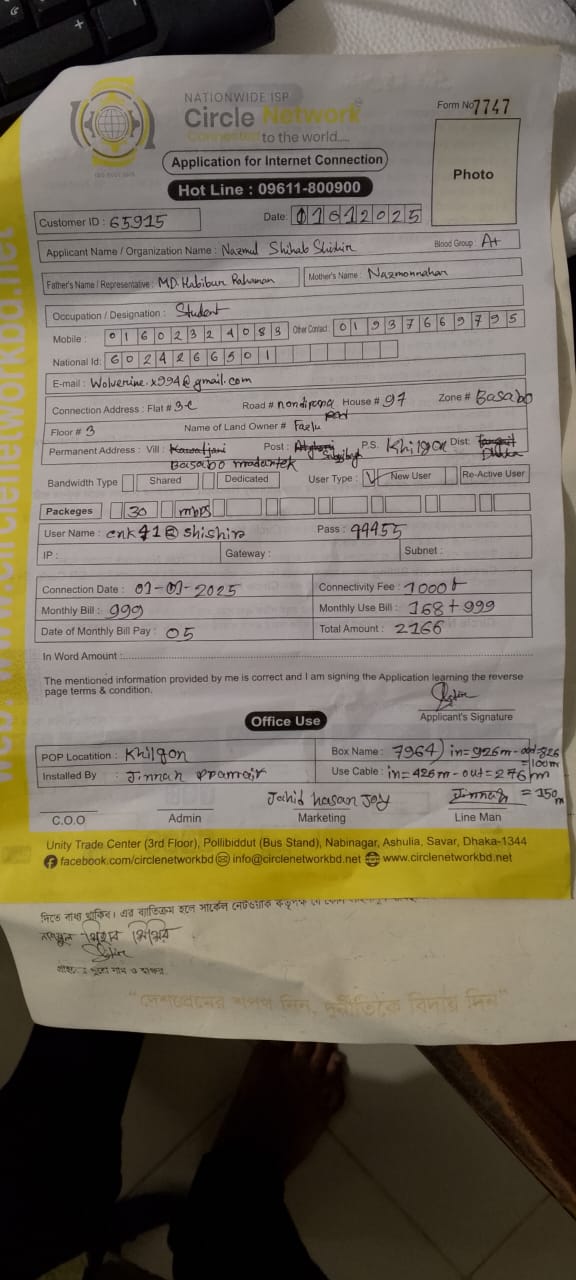 NATIONWIDE ISP
Circle Network
Connected to the world....
ISO 9001:2015
Form No 7747
Application for Internet Connection
Hot Line : 09611-800900
Photo
Customer ID : 65915
Date: 01012025
Applicant Name / Organization Name : Nazmul Shihab Shishir Blood Group : A+
Father's Name / Representative : MD. Habibur Rahaman Mother's Name : Nazmonnahar
Occupation / Designation : Student
Mobile : 01602324083 Other Contact : 01937669795
National Id: 6024266501
E-mail : Wolverine.x994@gmail.com
Connection Address : Flat # 3e Road # nondipara House # 97 Zone # Basabo
Floor # 3 Name of Land Owner # Fazlu
Permanent Address : Vill : Post : P.S. Khilgon Dist: Dhaka
Basabo madartek
Bandwidth Type Shared Dedicated User Type : New User Re-Active User
Packeges 30 mbps
User Name : cnk71@shishir Pass : 99455
IP : Gateway : Subnet :
Connection Date : 01-01-2025 Connectivity Fee : 1000৳
Monthly Bill : 999 Monthly Use Bill : 168 + 999
Date of Monthly Bill Pay : 05 Total Amount : 2166
In Word Amount :
The mentioned information provided by me is correct and I am signing the Application learning the reverse
page terms & condition.
Applicant's Signature
Office Use
POP Locatition : Khilgon Box Name : 7964) in=926m-out=826
=100m
Installed By : Jinnah pramair Use Cable : in=426m-out=276m
=150m
Jahid hasan Joy Jinnah
C.O.O Admin Marketing Line Man
Unity Trade Center (3rd Floor), Pollibiddut (Bus Stand), Nabinagar, Ashulia, Savar, Dhaka-1344
facebook.com/circlenetworkbd info@circlenetworkbd.net www.circlenetworkbd.net
web: www.circlenetworkbd.net
দিতে বাধ্য থাকিব। এর ব্যতিক্রম হলে সার্কেল নেটওয়ার্ক কর্তৃপক্ষ
নাজমুল শিহাব শিশির
"দেশপ্রেমের শপথ নিন, দুর্নীতিকে বিদায় দিন"